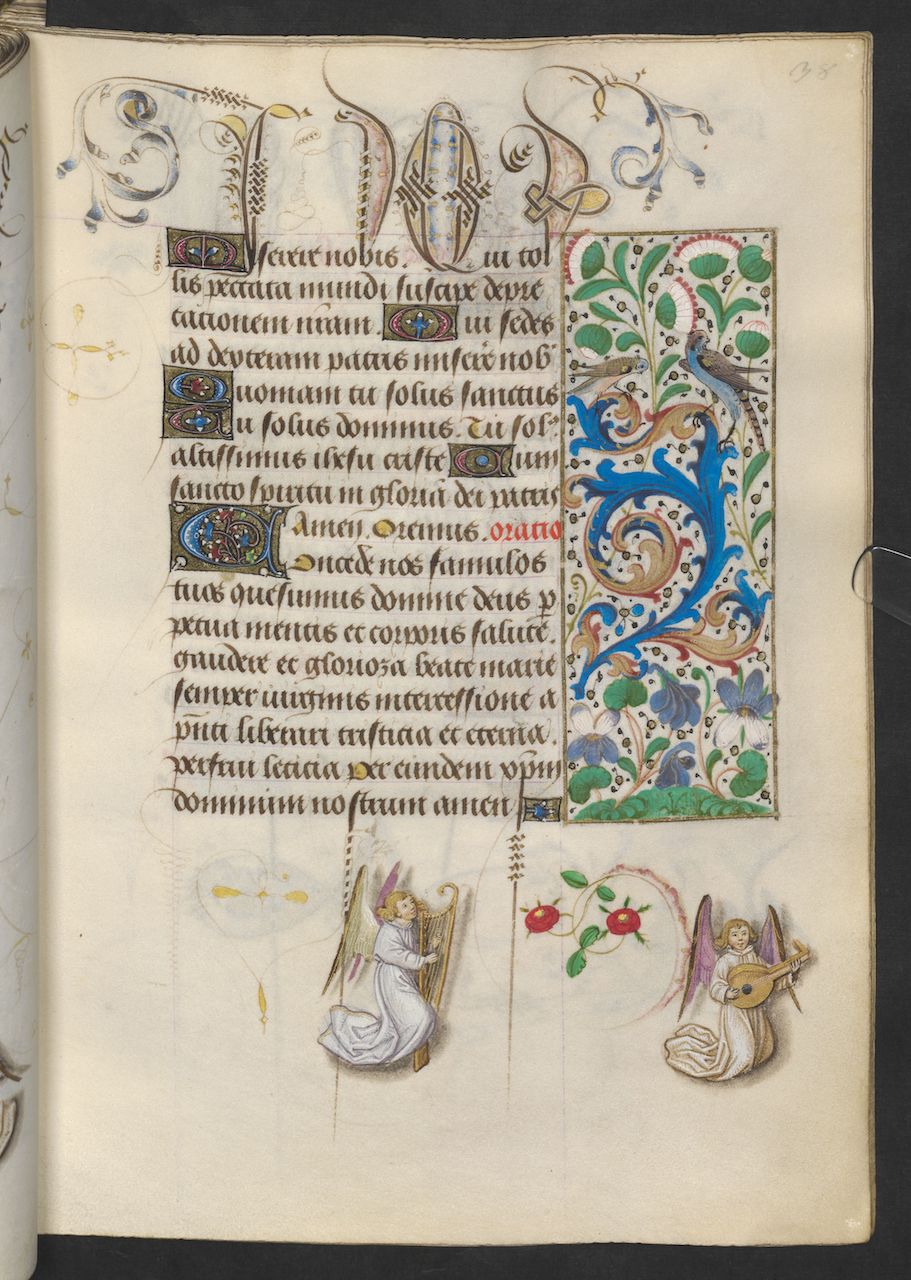 38
Miserere nobis. Qui tol
lis peccata mundi suscipe depre
cationem nr̄am. Qui sedes
ad dexteram patris miserē nob᾽
Quoniam tu solus sanctus
Tu solus dominus. Tu sol᾽
altissimus ihesu criste Cum
sancto spiritu in gloriā dei patris
Amen. Oremus. oratio
Concede nos famulos
tuos quesumus domine deus ꝑ
petua mentis et corporis salutē.
gaudere et glorioza beate marie
semper uirginis intercessione a
p̄nti liberari tristicia et eterna.
perfrui leticia Per eundem xp̄m
dominum nostrum amen